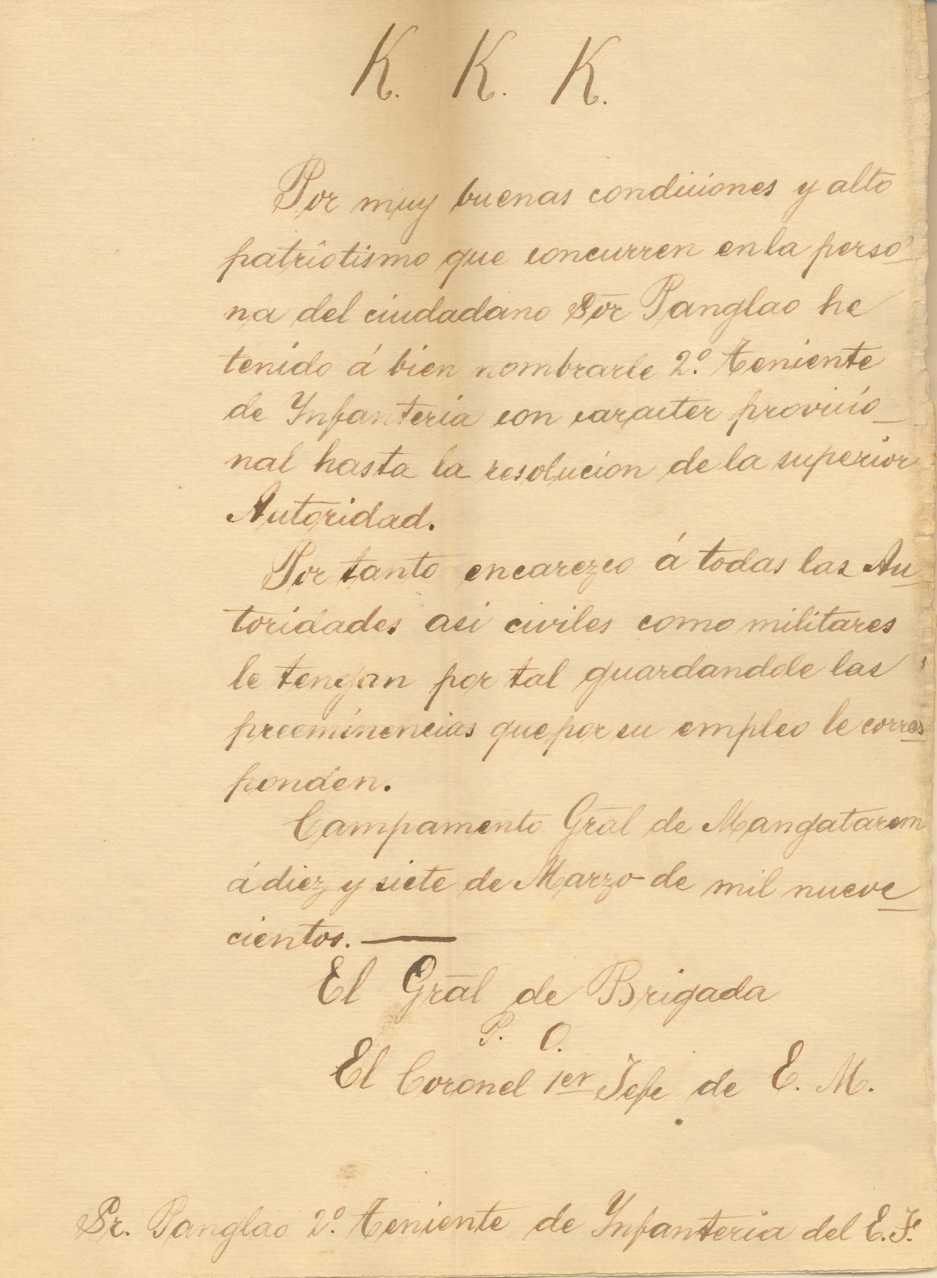 K. K. K.
Por muy buenas condiciones y alto
patriotismo que concurren en la perso-
na del ciudadano Sor Panglao he
tenido á bien nombrarle 2º. Teniente
de Ynfanteria con caracter provicio-
nal hasta la resolucion de la superior
Autoridad.
Por tanto encarezco á todas las Au-
toridades asi civiles como militares
le tengan por tal guardandole las
preeminencias que por su empleo le corres-
ponden.
Campamento Grāl de Mangatarem
á diez y siete de Marzo de mil nueve-
cientos. —
El Grāl de Brigada
P. O.
El Coronel 1er Jefe de E. M.
Sr. Panglao 2º. Teniente de Ynfanteria del E. F.